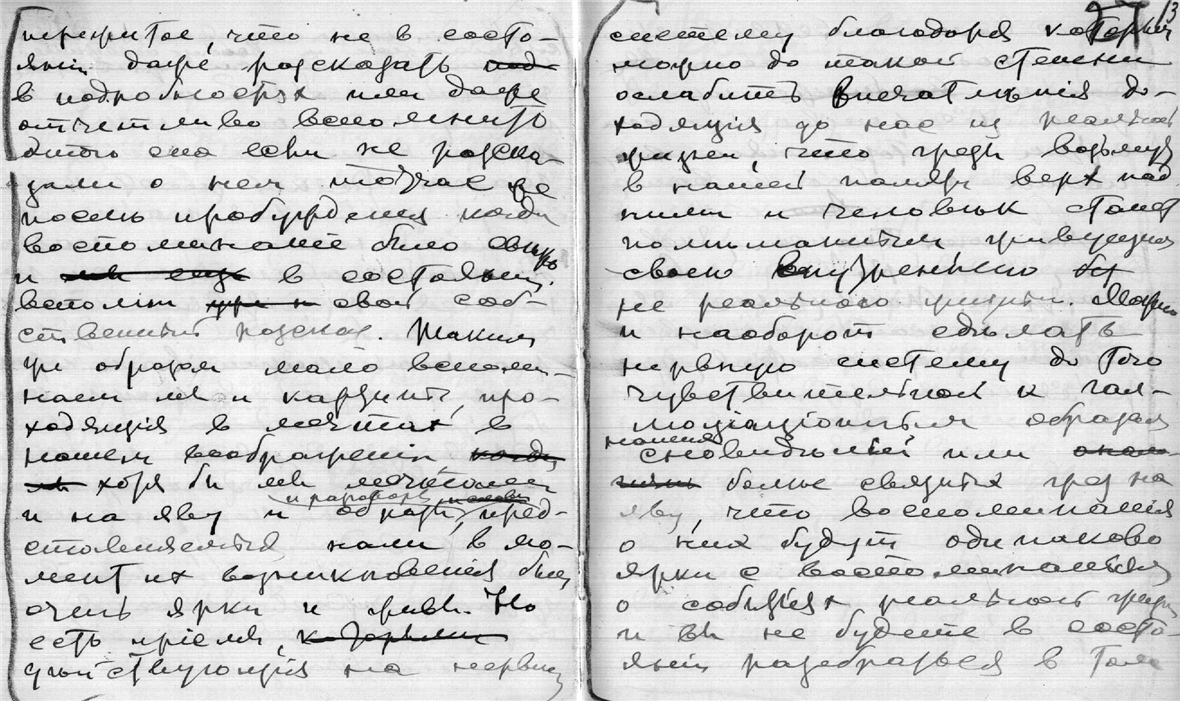 пережитое, что не в состо-
янiи даже розсказать под
в подробностях или даже
отчетливо вспомнить
было оно если не розска-
зали о нем тотчас же
после пробуждения когда
воспоминанiе было свежо
и не еще в состоянiи
вспомнить уже и свой соб-
ственный розсказ. Таким
же образом мало вспоми-
наем мы и картины, про-
ходящiя в мечтах в
нашем воображенiи когда
мы хотя бы мы мечтали
и разговоры и слова
и на яву и образы, пред-
ставляемые нами, в мо-
мент их возникновенiя были
очень ярки и живы. Но
есть прiемы, которыми
действующiя на нервную
13
систему благодаря которым
можно до такой степени
ослабить впечатленiя до-
ходящiя до нас из реальной
жизни что грезы возьмут
в нашей памяти верх над
ними и человек станет
жить своею внутреннею
не реальною жизнью. Можно
и наоборот сделать
нервную систему до того
чувствительной к гал-
люцинацiонным образам
наших
сновиденiй или
более связных грез на
яву, что воспоминания
о них будут одинаково
ярки с воспоминаньями
о событiях реальной жизни
и вы не будете в состо-
янiи разобраться в том